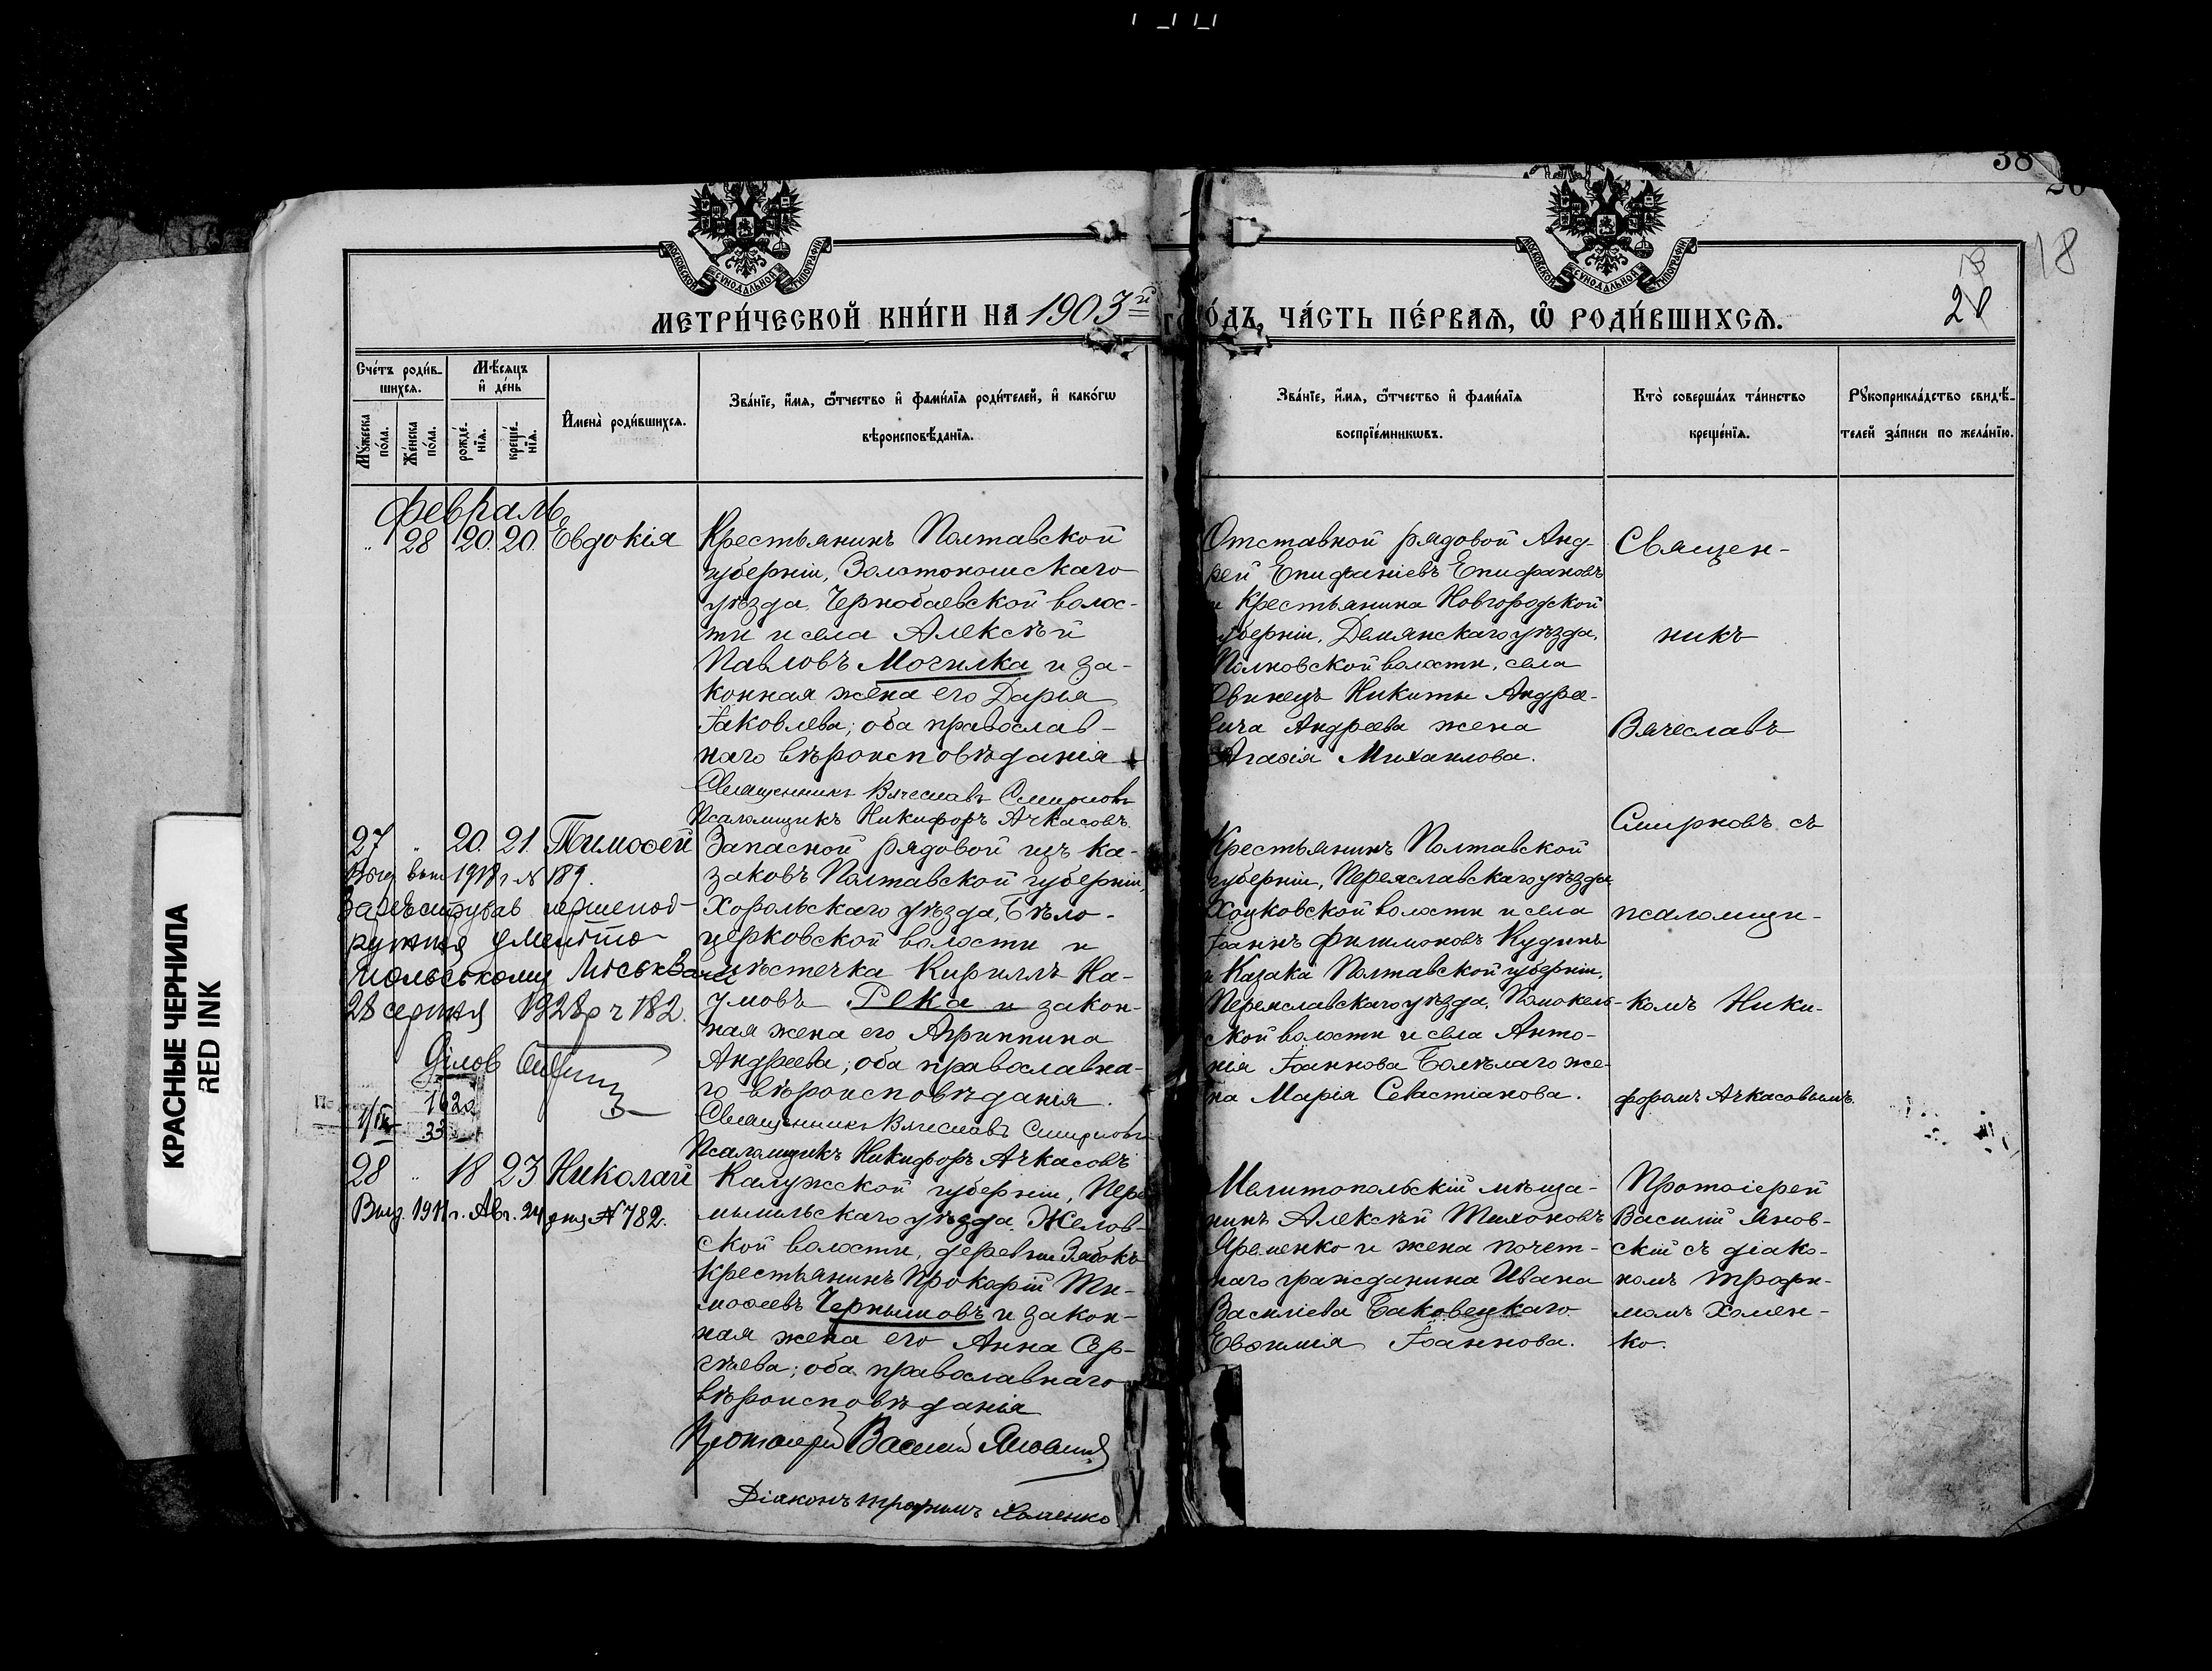 38
18
МОСКОВСКОЙ СѴНОДАЛЬНОЙ ТИПОГРАФІИ
МОСКОВСКОЙ СѴНОДАЛЬНОЙ ТИПОГРАФІИ
МЕТРИ́ЧЕСКОЙ КНИ́ГИ НА 1903й
ГО́ДЪ, ЧА́СТЬ ПЕ́РВАѦ, Ѽ РОДИ́ВШИХСѦ.
Сче́тъ роди́в-
шихсѧ.
Мѣ́сѧцъ
и҆ де́нь
Мꙋ́жеска по́ла.
Же́нска по́ла.
рожде́нїѧ.
креще́нїѧ.
И҆мена̀ роди́вшихсѧ.
Зва́нїе, и҆́мѧ, ѻ҆́тчество и҆ фами́лїѧ роди́телей, и҆ како́гѡ
вѣроисповѣ́данїѧ.
Зва́нїе, и҆́мѧ, ѻ҆́тчество и҆ фами́лїѧ
воспрїе́мникѡвъ.
Кто̀ соверша́лъ та́инство
креще́нїѧ.
Рꙋкоприкла́дство свидѣ́-
телей за́писи по жела́нїю.
Февраль
„ 28 20. 20. Евдокія
Крестьянинъ Полтавской
губерніи, Золотоношскаго
уѣзда, Чернобаевской волос-
ти и села Алексѣй
Павловъ Могилка и за-
конная жена его Дарія
Іаковлева; оба православ-
наго вѣроисповѣданія
Священникъ Вячеславъ Смирновъ
Псаломщикъ Никифоръ Ачкасовъ.
Отставной рядовой Анд-
рей Епифаніевъ Епифановъ
и Крестьянина Новгородской
губерніи, Демянскаго уѣзда,
Полновской волости, села
Никиты Андре-
вича Андреева жена
Агаѳія Михаилова.
Священ-
никъ
Вячеславъ
Смирновъ съ
псаломщи-
комъ Ники-
форомъ Ачкасовымъ.
27 „ 20. 21. Тимоѳей
1918 г. № 189.
28 серпня 1928 р ч 182.
Запасной рядовой изъ ка-
заковъ Полтавской губерніи,
Хорольскаго уѣзда, Бѣло-
церковской волости и
мѣстечка Кириллъ На-
умовъ Река и закон-
ная жена его Агриппина
Андреева; оба православна-
го вѣроисповѣданія.
Священникъ Вячеславъ Смирновъ
Псаломщикъ Никифоръ Ачкасовъ
Крестьянинъ Полтавской
губерніи, Переяславскаго уѣзда
Хоцковской волости и села
Іоаннъ Филимоновъ Кудинъ
и Казака Полтавской губерніи,
Переяславскаго уѣзда,
ской волости и села Анто-
нія Іоаннова же-
на Марія Севастіанова.
28 „ 18 23 Николай
Выд. 1911 г. Авг. 24 дня № 782.
Калужской губерніи, Пере
мышльскаго уѣзда, Желов-
ской волости, деревни
крестьянинъ Прокофій Ти-
моѳеевъ Чернышовъ и закон-
ная жена его Анна Сер-
гѣева; оба православнаго
вѣроисповѣданія
Протоіерей Василій Яновскій
Діаконъ Трофимъ Хоменко
Мелитопольскій мѣща-
нинъ Алексѣй Тихоновъ
Яременко и жена почет-
наго гражданина Ивана
Василіева Баковецкаго
Евѳимія Іоаннова.
Протоіерей
Василій Янов-
скій съ діако-
номъ Трофи-
момъ Хомен-
ко.
КРАСНЫЕ ЧЕРНИЛА
RED INK